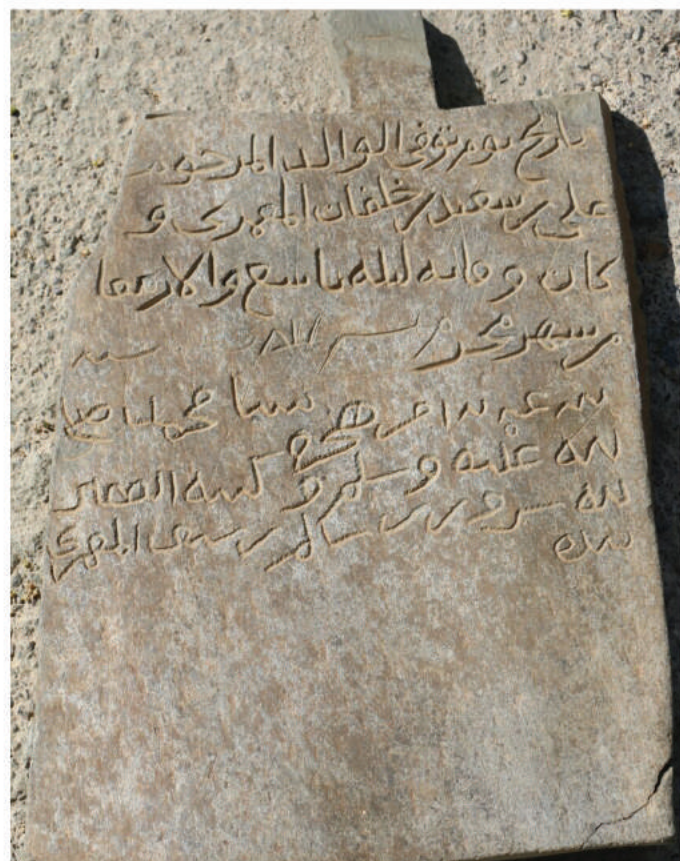 تاريخ يوم توفى الوالد المرحوم
على بن سعيد بن خلفان المعمرى و
كان وفاته ليلة تاسع والاربعا
من شهر محرم سنه
من هجرة نبينا محمد صلى
الله عليه وسلم وكتبه الفقير
لله سرور بن سالم بن سعيد المعمري
بيده